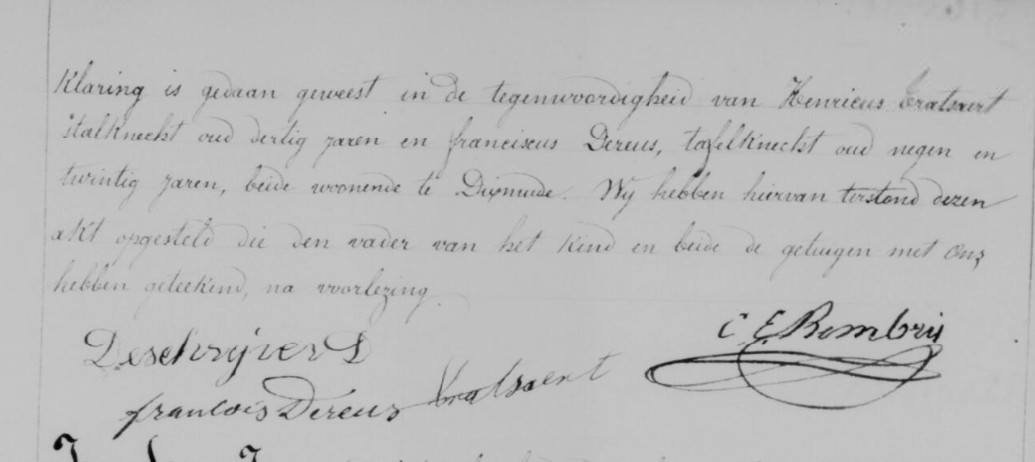 Klaring is gedaan geweest in de tegenwoordigheid van Henricus
stalknecht oud dertig jaren en franciscus Dereus, tafelknecht oud negen en
twintig jaren, beide woonende te Dixmude. Wij hebben hiervan terstond dezen
akt opgesteld die den vader van het kind en beide de getuigen met ons
hebben geteekend, na voorlezing.
Deschrijver D
C E Rombry
francois Dereus